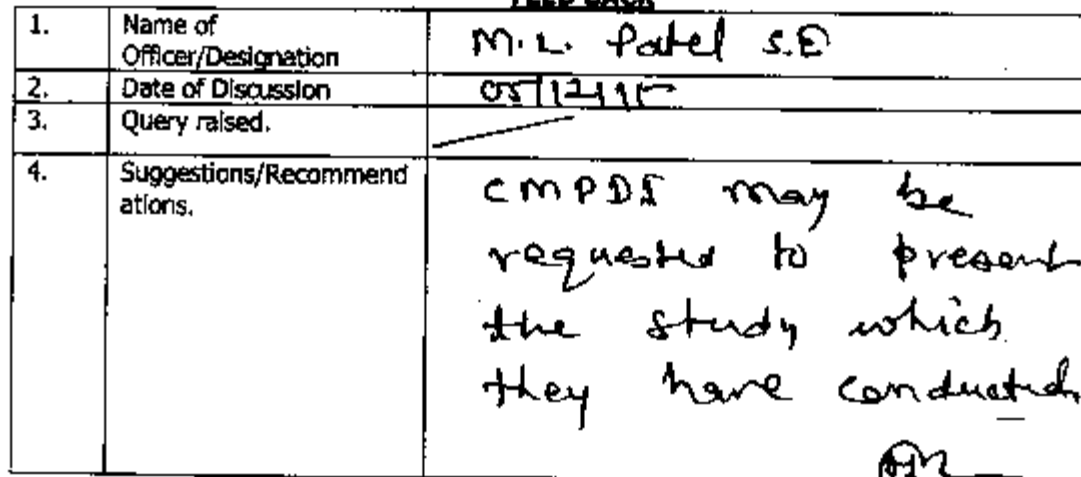 FEED BACK
1. Name of Officer/Designation M.L. Patel S.E
2. Date of Discussion 05/12/15
3. Query raised.
4. Suggestions/Recommend
ations.
CMPDI may be
requested to present
the study which
they have conducted.